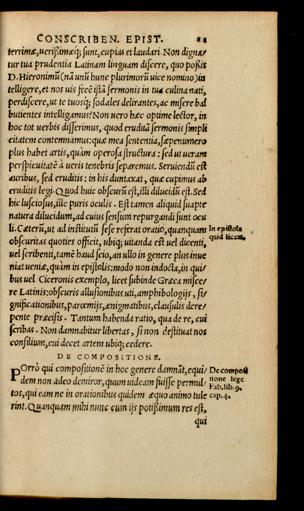 CONSCRIBEN. EPIST. 22
terrimæ, uerißimæq; sunt, cupias et laudari. Non dignæ/
tur tua prudentia Latinam linguam discere, quo poßis
D. Hieronimũ (nã unũ hunc plurimorũ uice nomino) in
telligere, et nos uis fecę istã sermonis in tua culina nati,
perdiscere, ut te tuosq; sodales delirantes, ac misere bal
butientes intelligamus? Non uero hæc optime lector, in
hoc tot uerbis disserimus, quod eruditã sermonis simpli
citatem contemnamus: quæ mea sententia, sæpenumero
plus habet artis, quàm operosa structura: sed ut ueram
perspicuitatẽ à ueris tenebris separemus. Seruiendũ est
auribus, sed eruditis: in his duntaxat, quæ cupimus ab
eruditis legi. Quod huic obscurũ est, illi dilucidũ est. Sed
hic lusciosus, ille puris oculis. Est tamen aliquid suapte
natura dilucidum, ad cuius sensum repurgandi sunt ocu
li. Cæterũ, ut ad institutũ sese referat oratio, quanquam
obscuritas quoties officit, ubiq; uitanda est uel dicenti,
uel scribenti, tamẽ haud scio, an ullo in genere plus inue
niat ueniæ, quàm in epistolis: modo non indocta, in qui/
bus uel Ciceronis exemplo, licet subinde Græca misce/
re Latinis: obscuris allusionibus uti, amphibologijs, si/
gnificationibus, parœmijs, ænigmatibus, clausulis dere/
pente præcisis. Tantum habenda ratio, qua de re, cui
scribas. Non damnabitur libertas, si non destituat nos
consilium, cui decet artem ubiq; cedere.
In epistola
quid liceat.
DE COMPOSITIONE.
POrrò qui compositionẽ in hoc genere damnãt, equi/
dem non adeo demiror, quum uideam fuisse permul/
tos, qui eam ne in orationibus quidem æquo animo tule
rint. Quanquam mihi nunc cum ijs potißimum res est,
qui
De composi
tione lege
Fab. lib. 9.
cap. 4.